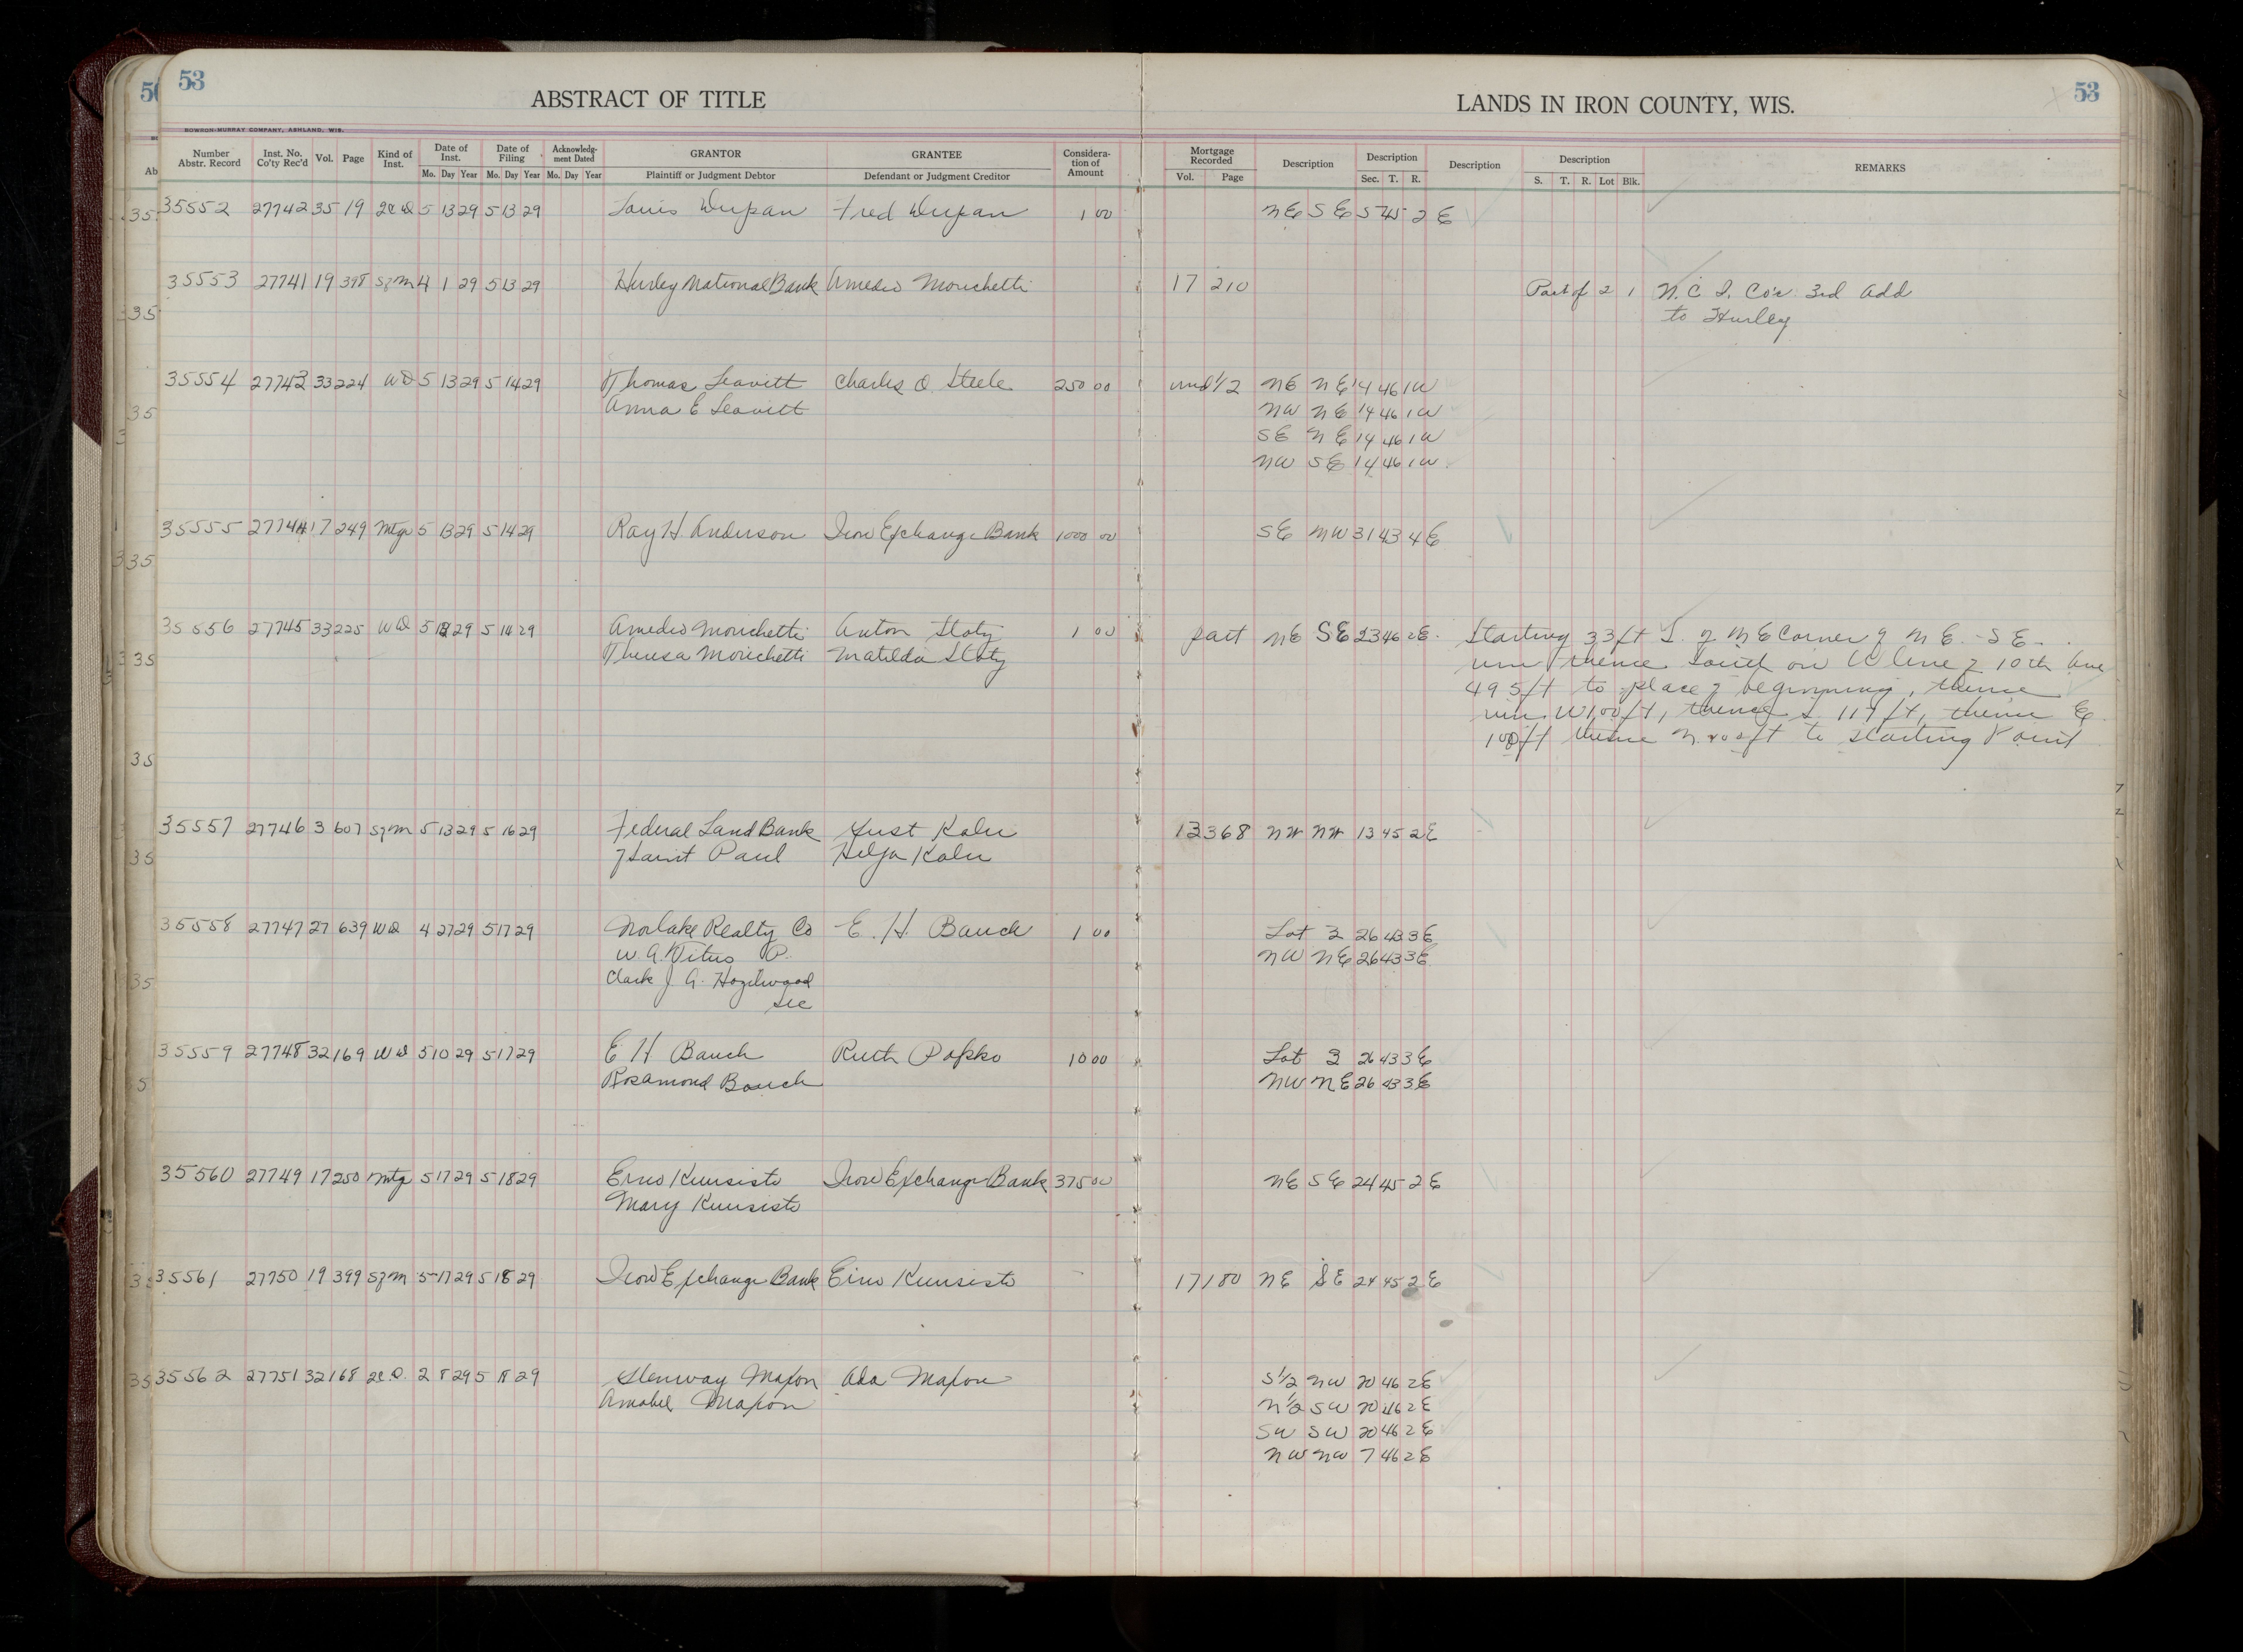 53
ABSTRACT OF TITLE
LANDS IN IRON COUNTY, WIS.
53
BOWRON-MURRAY COMPANY, ASHLAND, WIS.
Number Abstr. Record Inst. No. Co'ty Rec'd Vol. Page Kind of Inst. Date of Inst. Mo. Day Year Date of Filing Mo. Day Year Acknowledgment Dated Mo. Day Year GRANTOR Plaintiff or Judgment Debtor GRANTEE Defendant or Judgment Creditor Consideration of Amount Mortgage Recorded Vol. Page Description Description Sec. T. R. Description Description S. T. R. Lot Blk. REMARKS
35552 27742 35 19 2C D 5 13 29 5 13 29 Louis Fred 1 00 NE SE 5 45 2 E
35553 27741 19 398 Szm 4 1 29 5 13 29 Hurley National Bank Amedio Morichetti 17 210 Part of 2 1 N.C.I. Co's 3rd Add
to Hurley
35554 27743 33 224 WD 5 13 29 5 14 29 Thomas Leavitt Charles O. Steele 250 00 und 1/2 NE NE 14 46 1W
Anna E Leavitt NW NE 14 46 1W
SE NE 14 46 1W
NW SE 14 46 1W
35555 27744 17 249 Mtge 5 13 29 5 14 29 Ray H Anderson Iron Exchange Bank 1000 00 SE NW 31 43 4E
35556 27745 33 225 WD 5 29 5 14 29 Amedio Morichetti Anton Sloty 1 00 part NE SE 23 46 2E Starting 33 ft S. of NE Corner of NE - SE
Theresa Morichetti Matilda Sloty run thence South on W line of 10th Ave
495 ft to place of beginning, thence
run W 100 ft, thence S. 117 ft, thence E
100 ft thence N. ft to starting Point
35557 27746 3 607 Szm 5 13 29 5 16 29 Federal Land Bank Yust Kalu 12 368 NW NW 13 45 2E
Saint Paul Hilja Kalu
35558 27747 27 639 WD 4 27 29 5 17 29 Norlake Realty Co E. H. Bauch 1 00 Lot 3 26 43 3E
W. A. Titus P. NW NE 26 43 3E
Clark J. A. Hazelwood
Sec
35559 27748 32 169 WD 5 10 29 5 17 29 E H Bauch Ruth Popko 10 00 Lot 3 26 43 3E
Rosamond Bauch NW NE 26 43 3E
35560 27749 17 250 Mtg 5 17 29 5 18 29 Eino Kuusisto Iron Exchange Bank 375 00 NE SE 24 45 2E
Mary Kuusisto
35561 27750 19 399 Szm 5 17 29 5 18 29 Iron Exchange Bank Eino Kuusisto 17 180 NE SE 24 45 2E
35562 27751 32 168 2C D. 2 8 29 5 18 29 Stenway Maxon Ada Maxon S 1/2 NW 20 46 2E
Amabel Maxon N 1/2 SW 20 46 2E
SW SW 20 46 2E
NW NW 7 46 2E